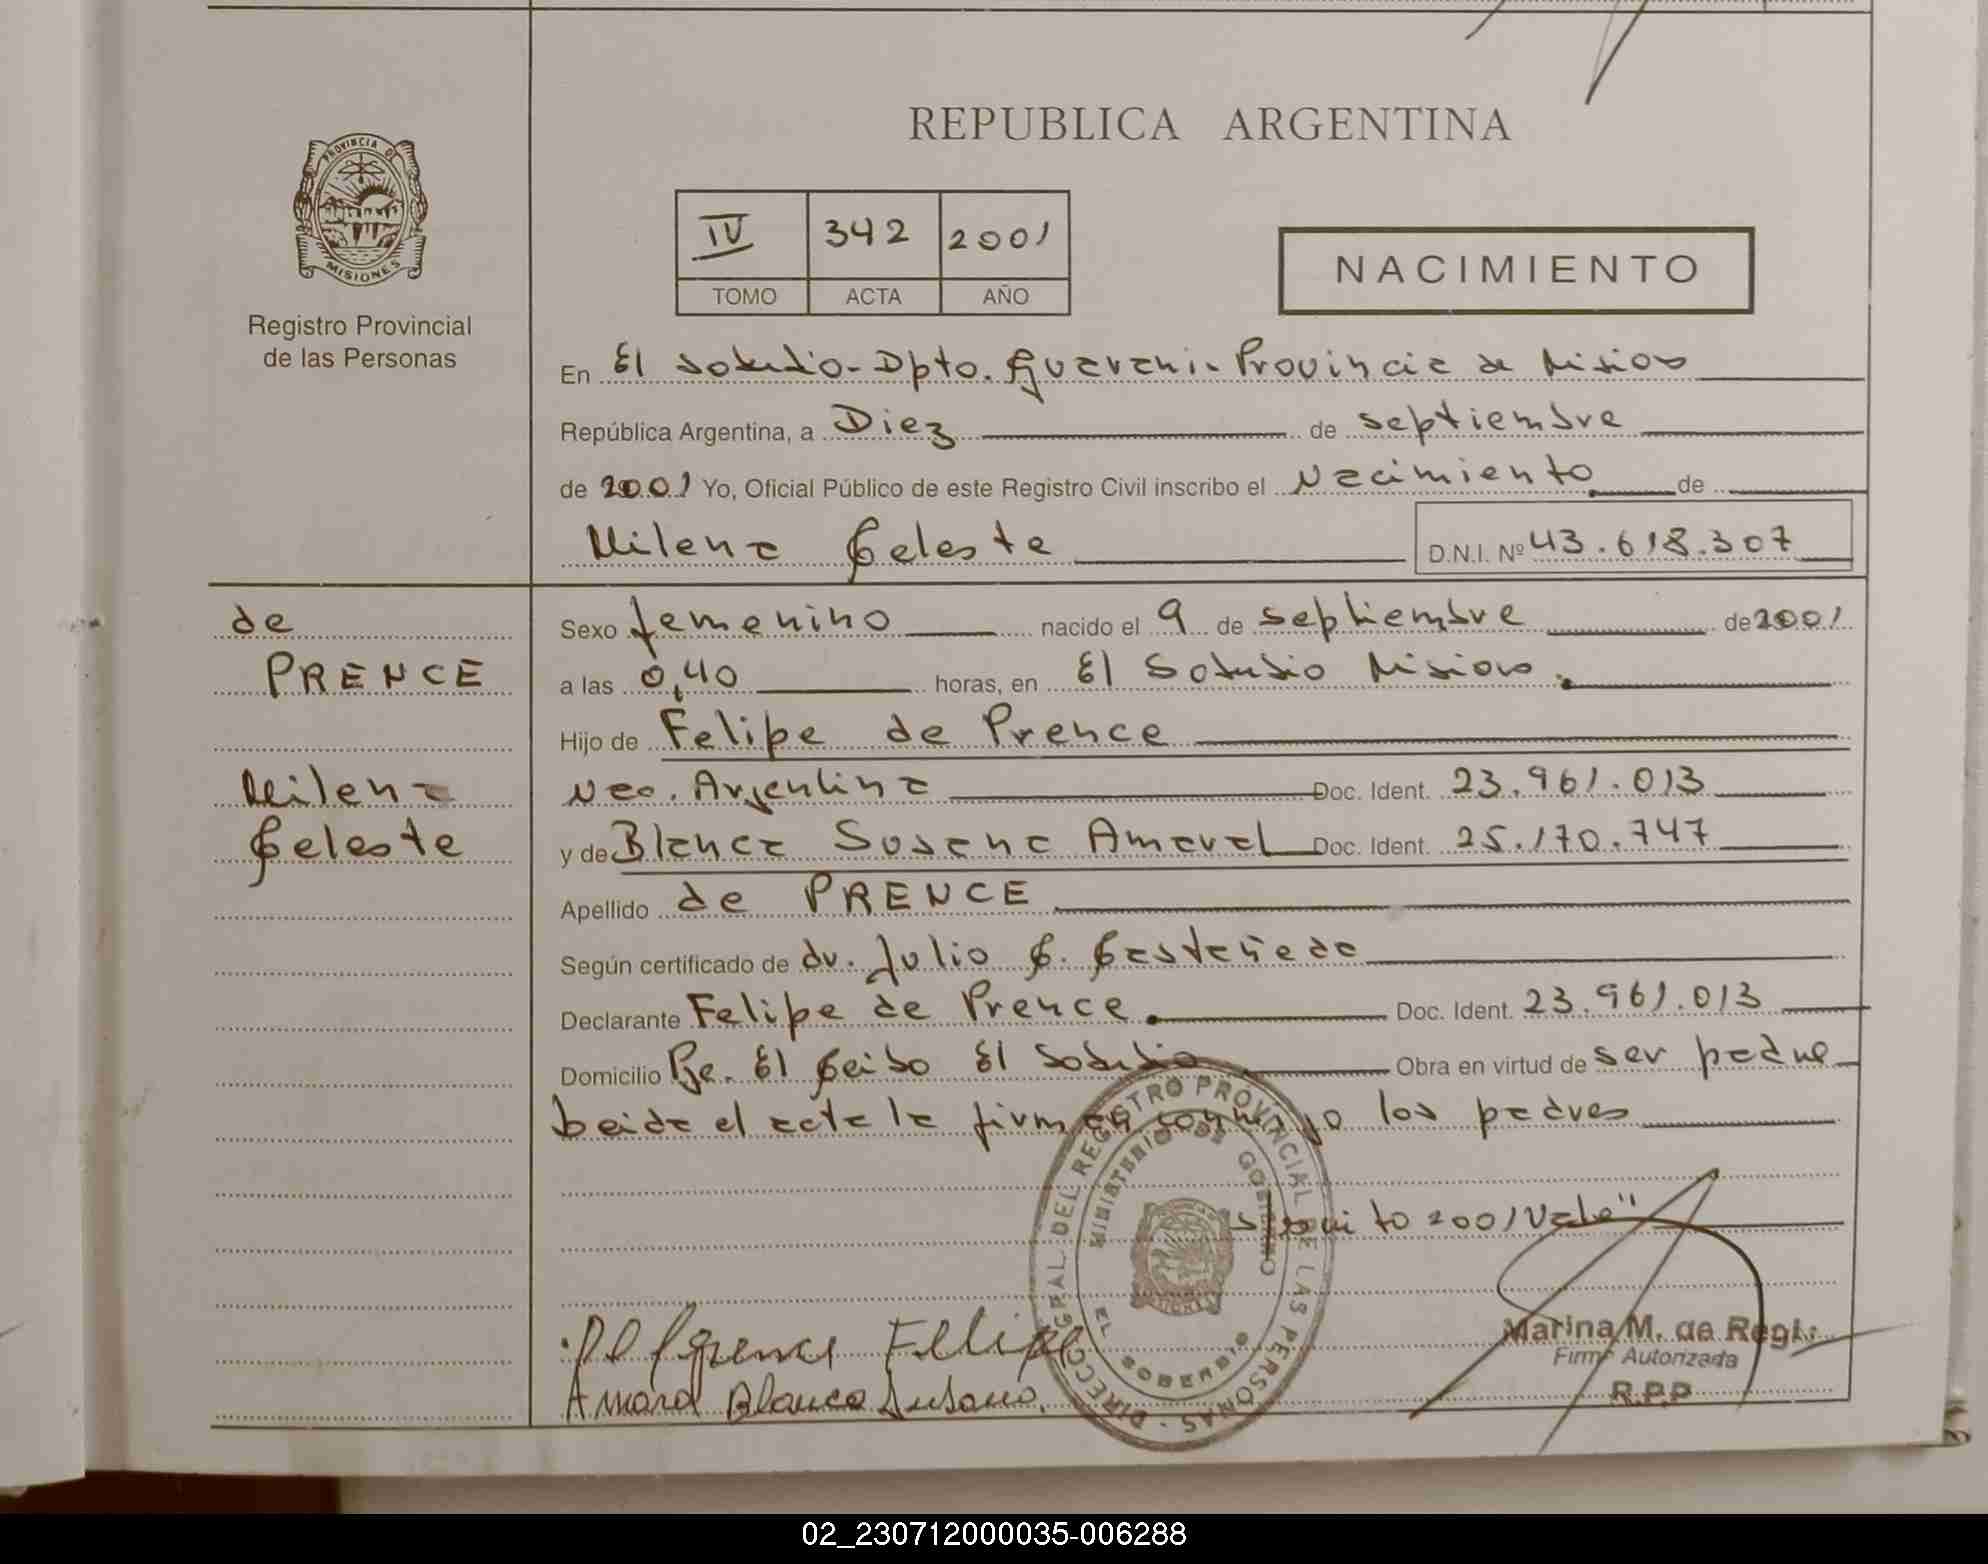 REPUBLICA ARGENTINA
PROVINCIA DE
MISIONES
Registro Provincial
de las Personas
IV 342 2001
TOMO ACTA AÑO
NACIMIENTO
En El Soberbio - Dpto. Guarani - Provincia de Misiones
República Argentina, a Diez de septiembre
de 2001 Yo, Oficial Público de este Registro Civil inscribo el Nacimiento de
Milena Celeste D.N.I. Nº 43.618.307
de
PRENCE
Milena
Celeste
Sexo femenino nacido el 9 de septiembre de 2001
a las 0,40 horas, en El Soberbio Misiones.
Hijo de Felipe de Prence
Nac. Argentina Doc. Ident. 23.961.013
y de Blanca Susana Amaral Doc. Ident. 25.170.747
Apellido de PRENCE
Según certificado de dr. Julio C. Castañeda
Declarante Felipe de Prence. Doc. Ident. 23.961.013
Domicilio Pje. El Ceibo El Soberbio Obra en virtud de ser padre
Leida el acta la firman conmigo los padres
2001 Vale"
DIRECC GRAL DEL REGISTRO PROVINCIAL DE LAS PERSONAS -
MINISTERIO DE GOBIERNO
EL SOBERBIO
Felipe
Amaral Blanca Susana.
Marina M. de Regi
Firma Autorizada
R.P.P
02_230712000035-006288